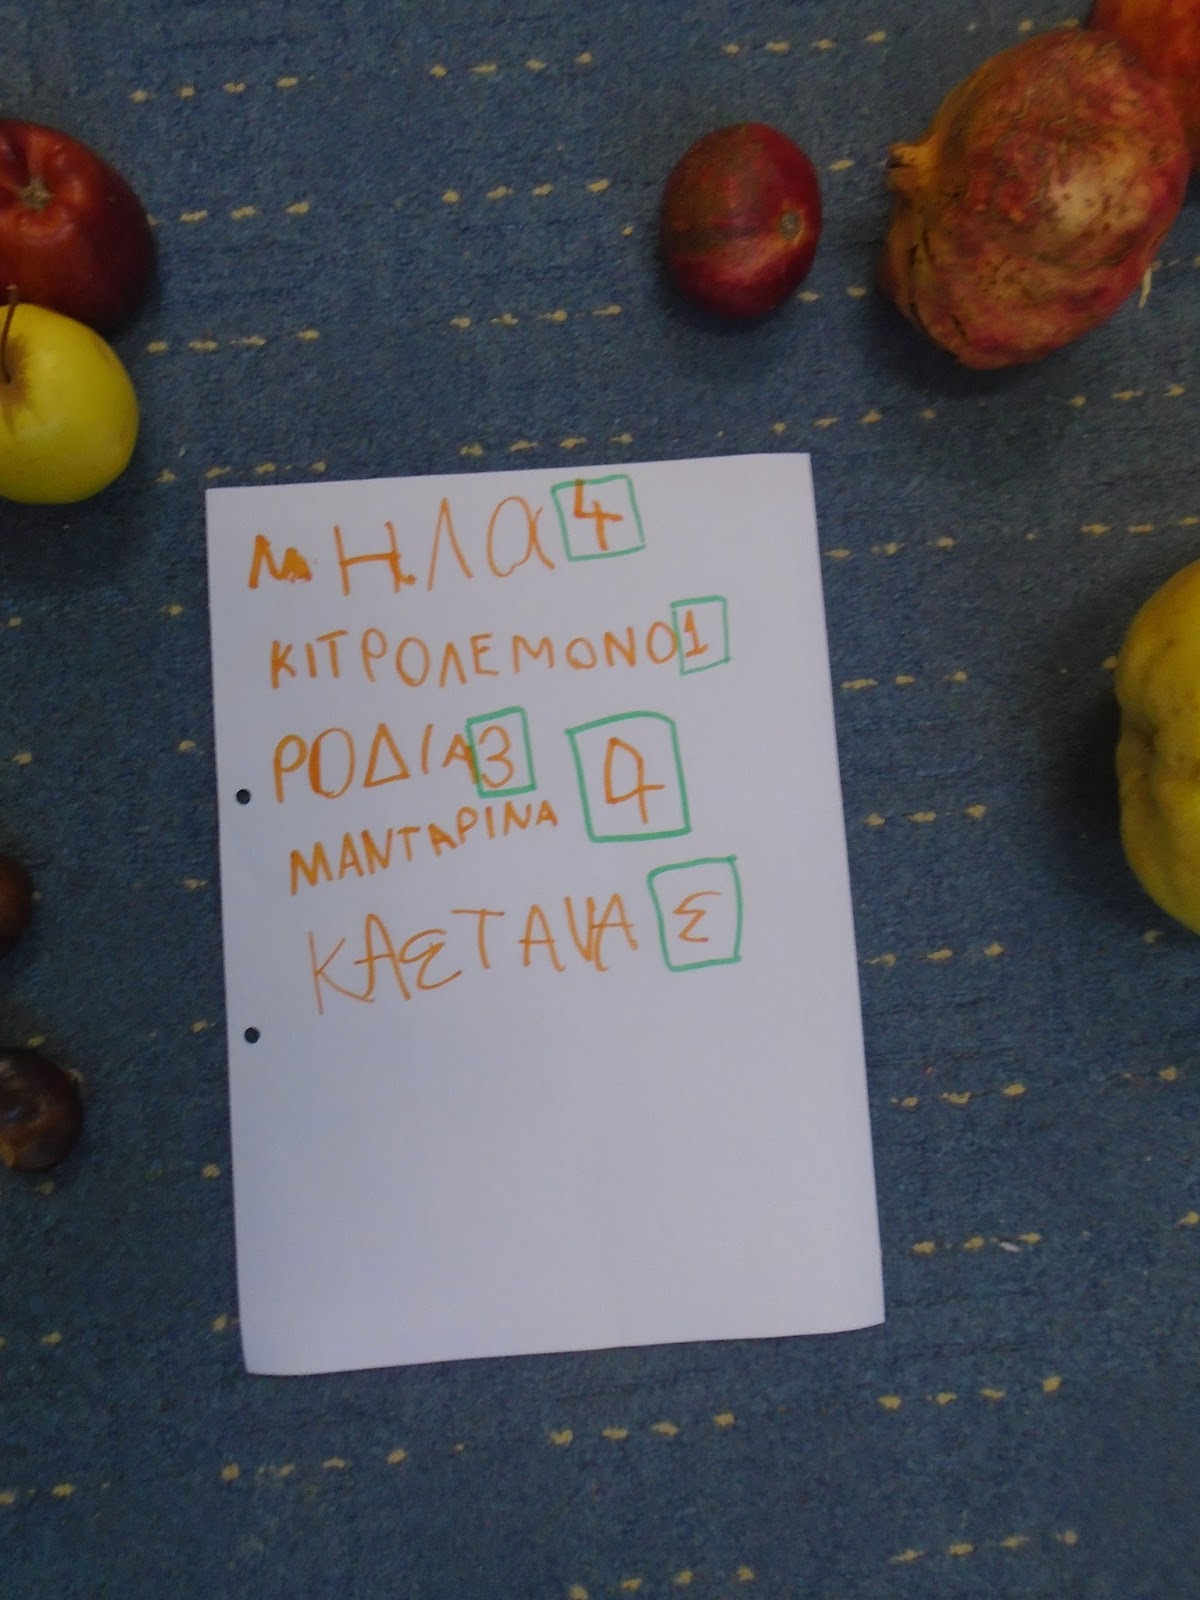 ΜΗΛΑ 4
ΚΙΤΡΟΛΕΜΟΝΟ 1
ΡΟΔΙΑ 3
ΜΑΝΤΑΡΙΝΑ 4
ΚΑΣΤΑΝΑ Σ